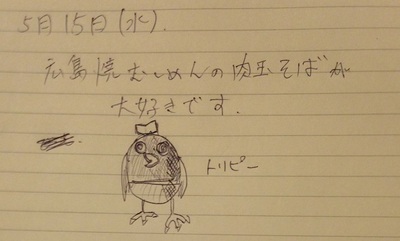 5月15日(水).
広島焼むしめんの肉玉そばが
大好きです.
トリピー